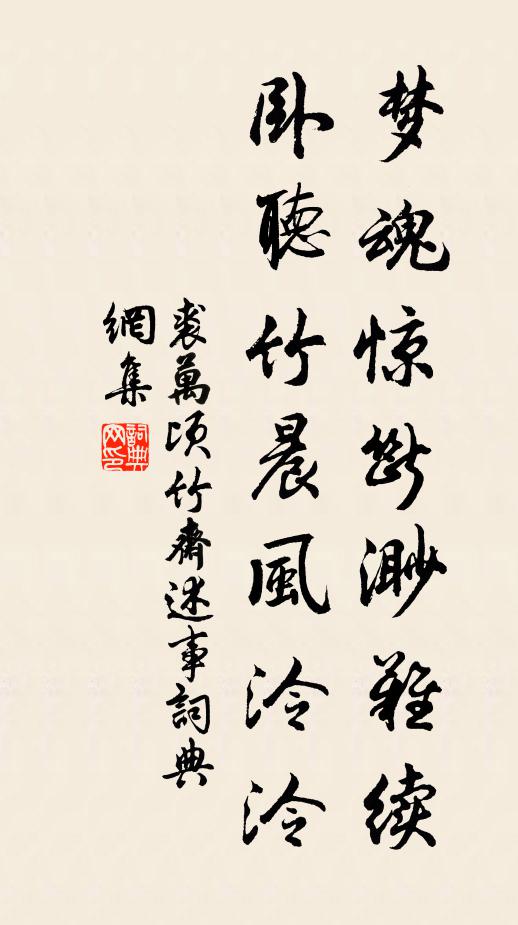 梦魂惊断渺難续
卧聽竹晨風泠泠
裘萬顷竹齋述事詞典
網集
詞典網印